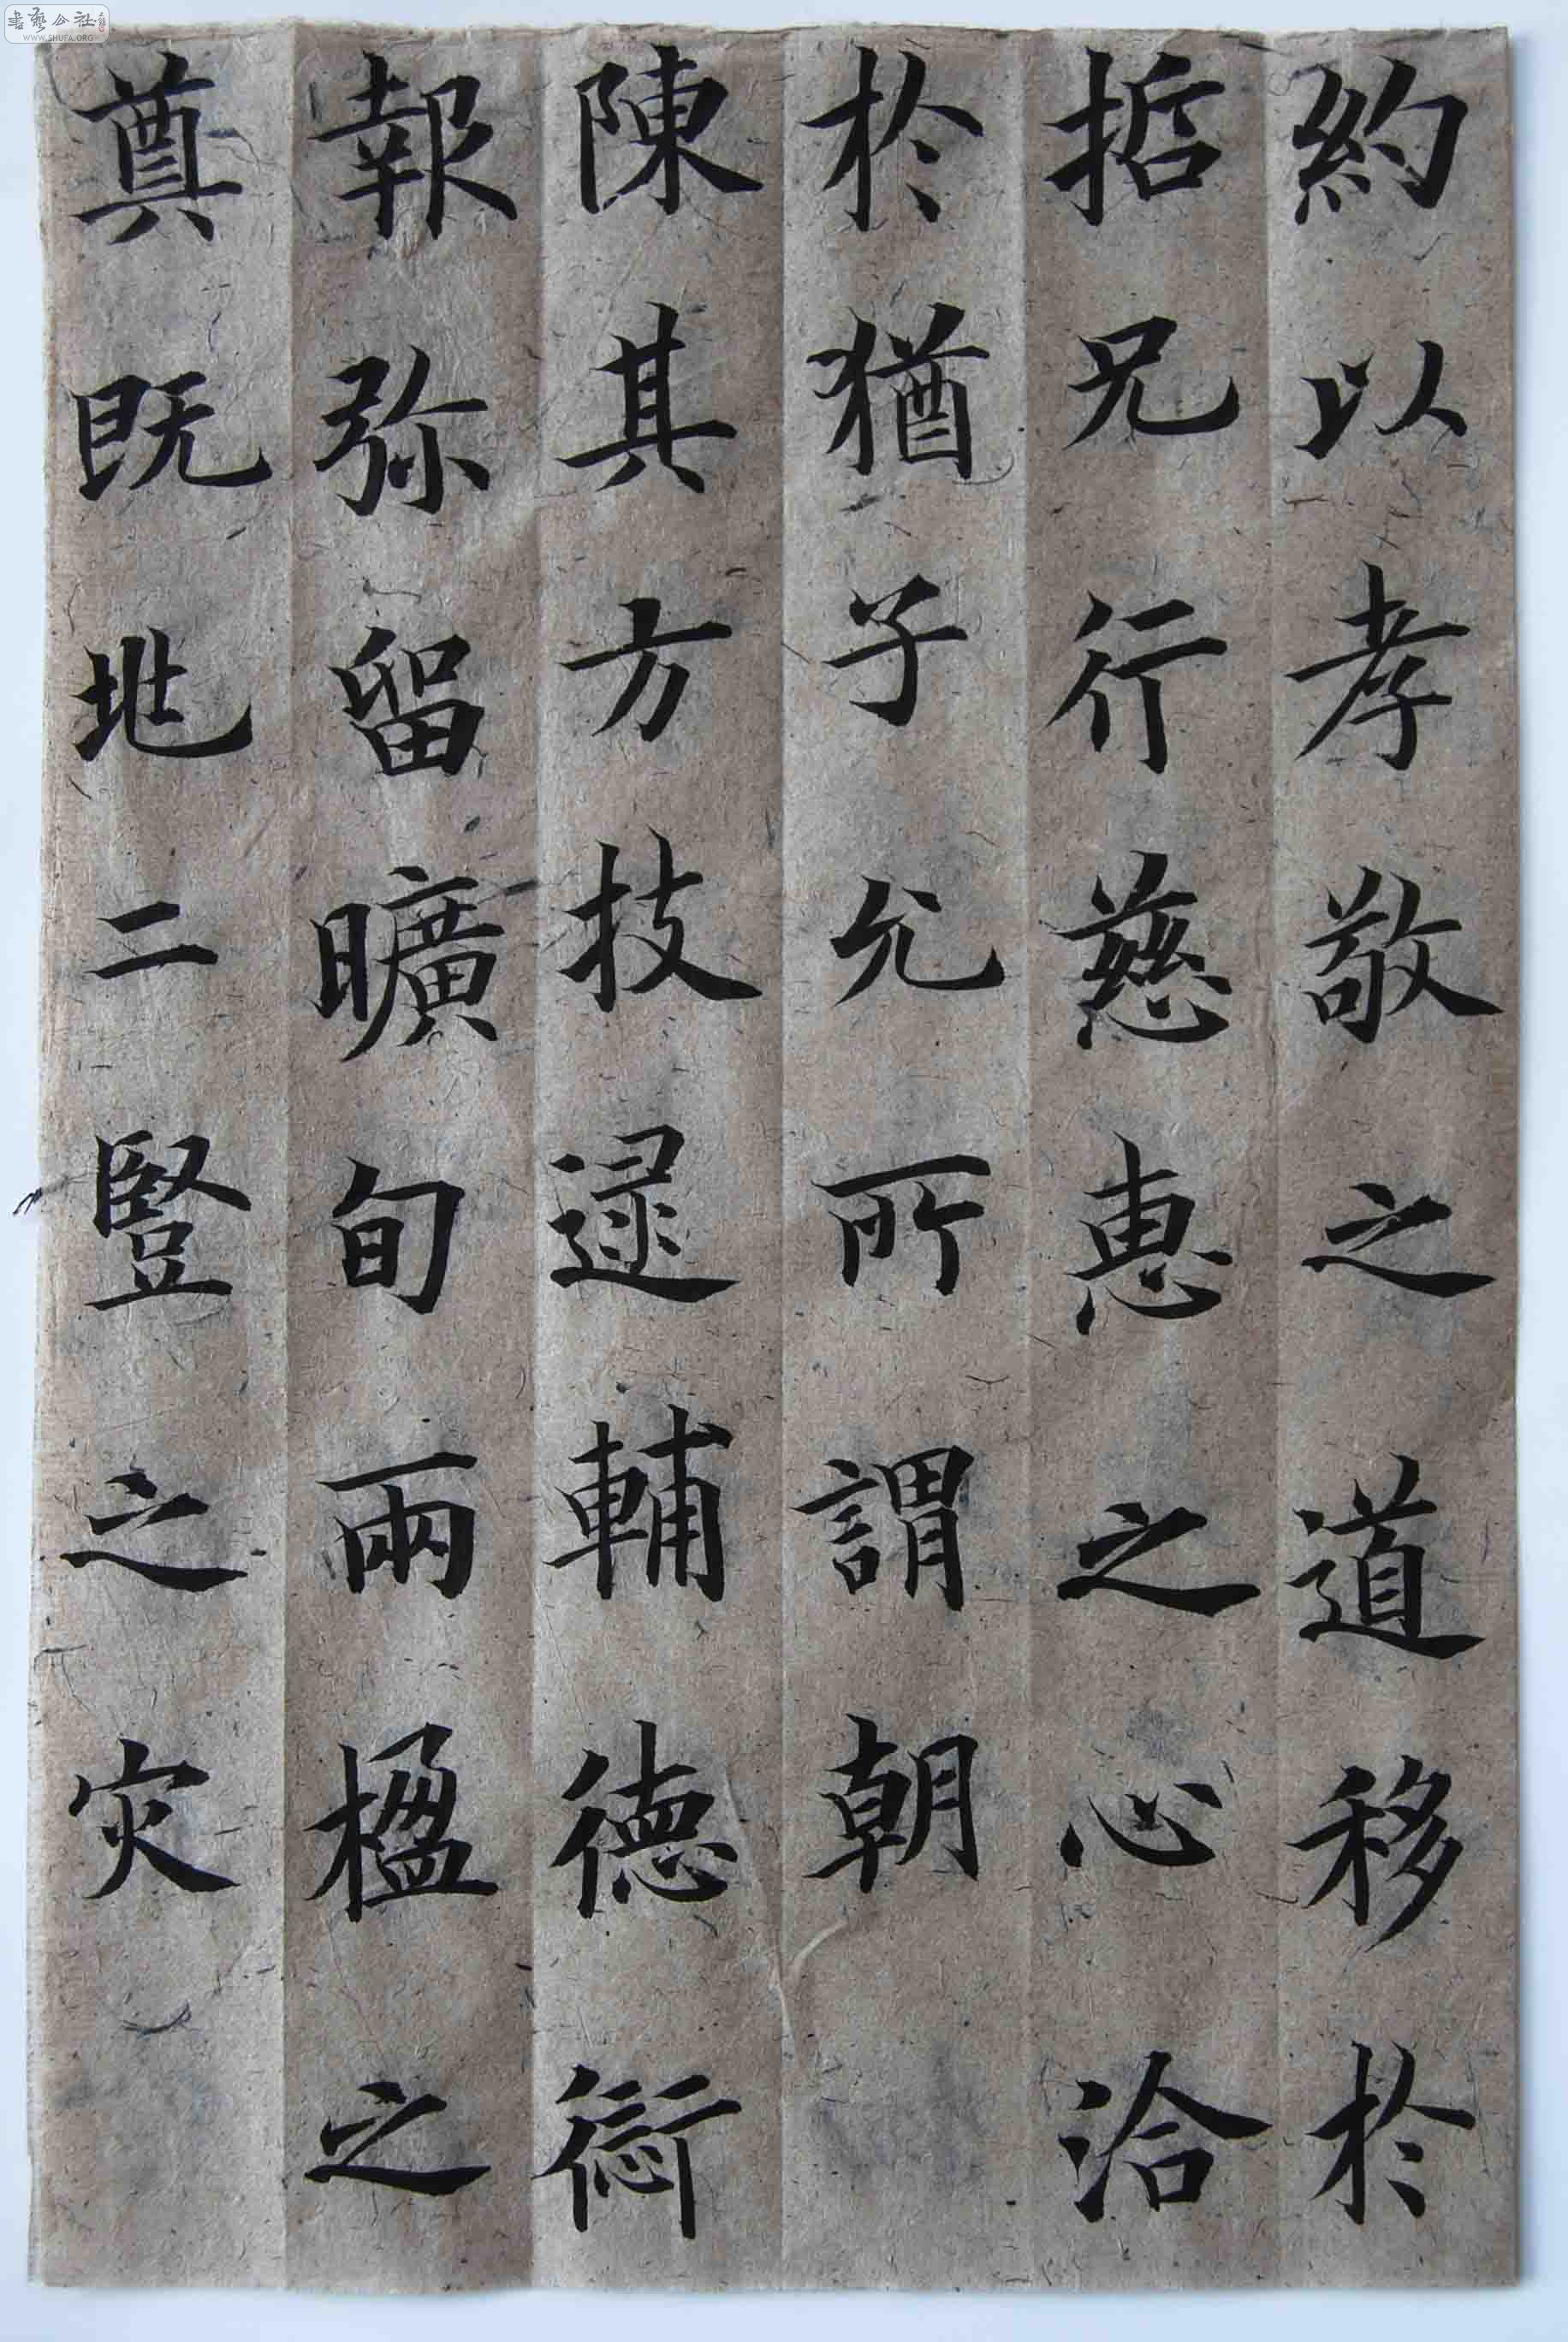 約以孝敬之道移於
哲兄行慈惠之心洽
於猶子允所謂朝
陳其方技逮輔德愆
報弥留曠旬兩楹之
奠既兆二豎之灾
書藝公社
WWW.SHUFA.ORG